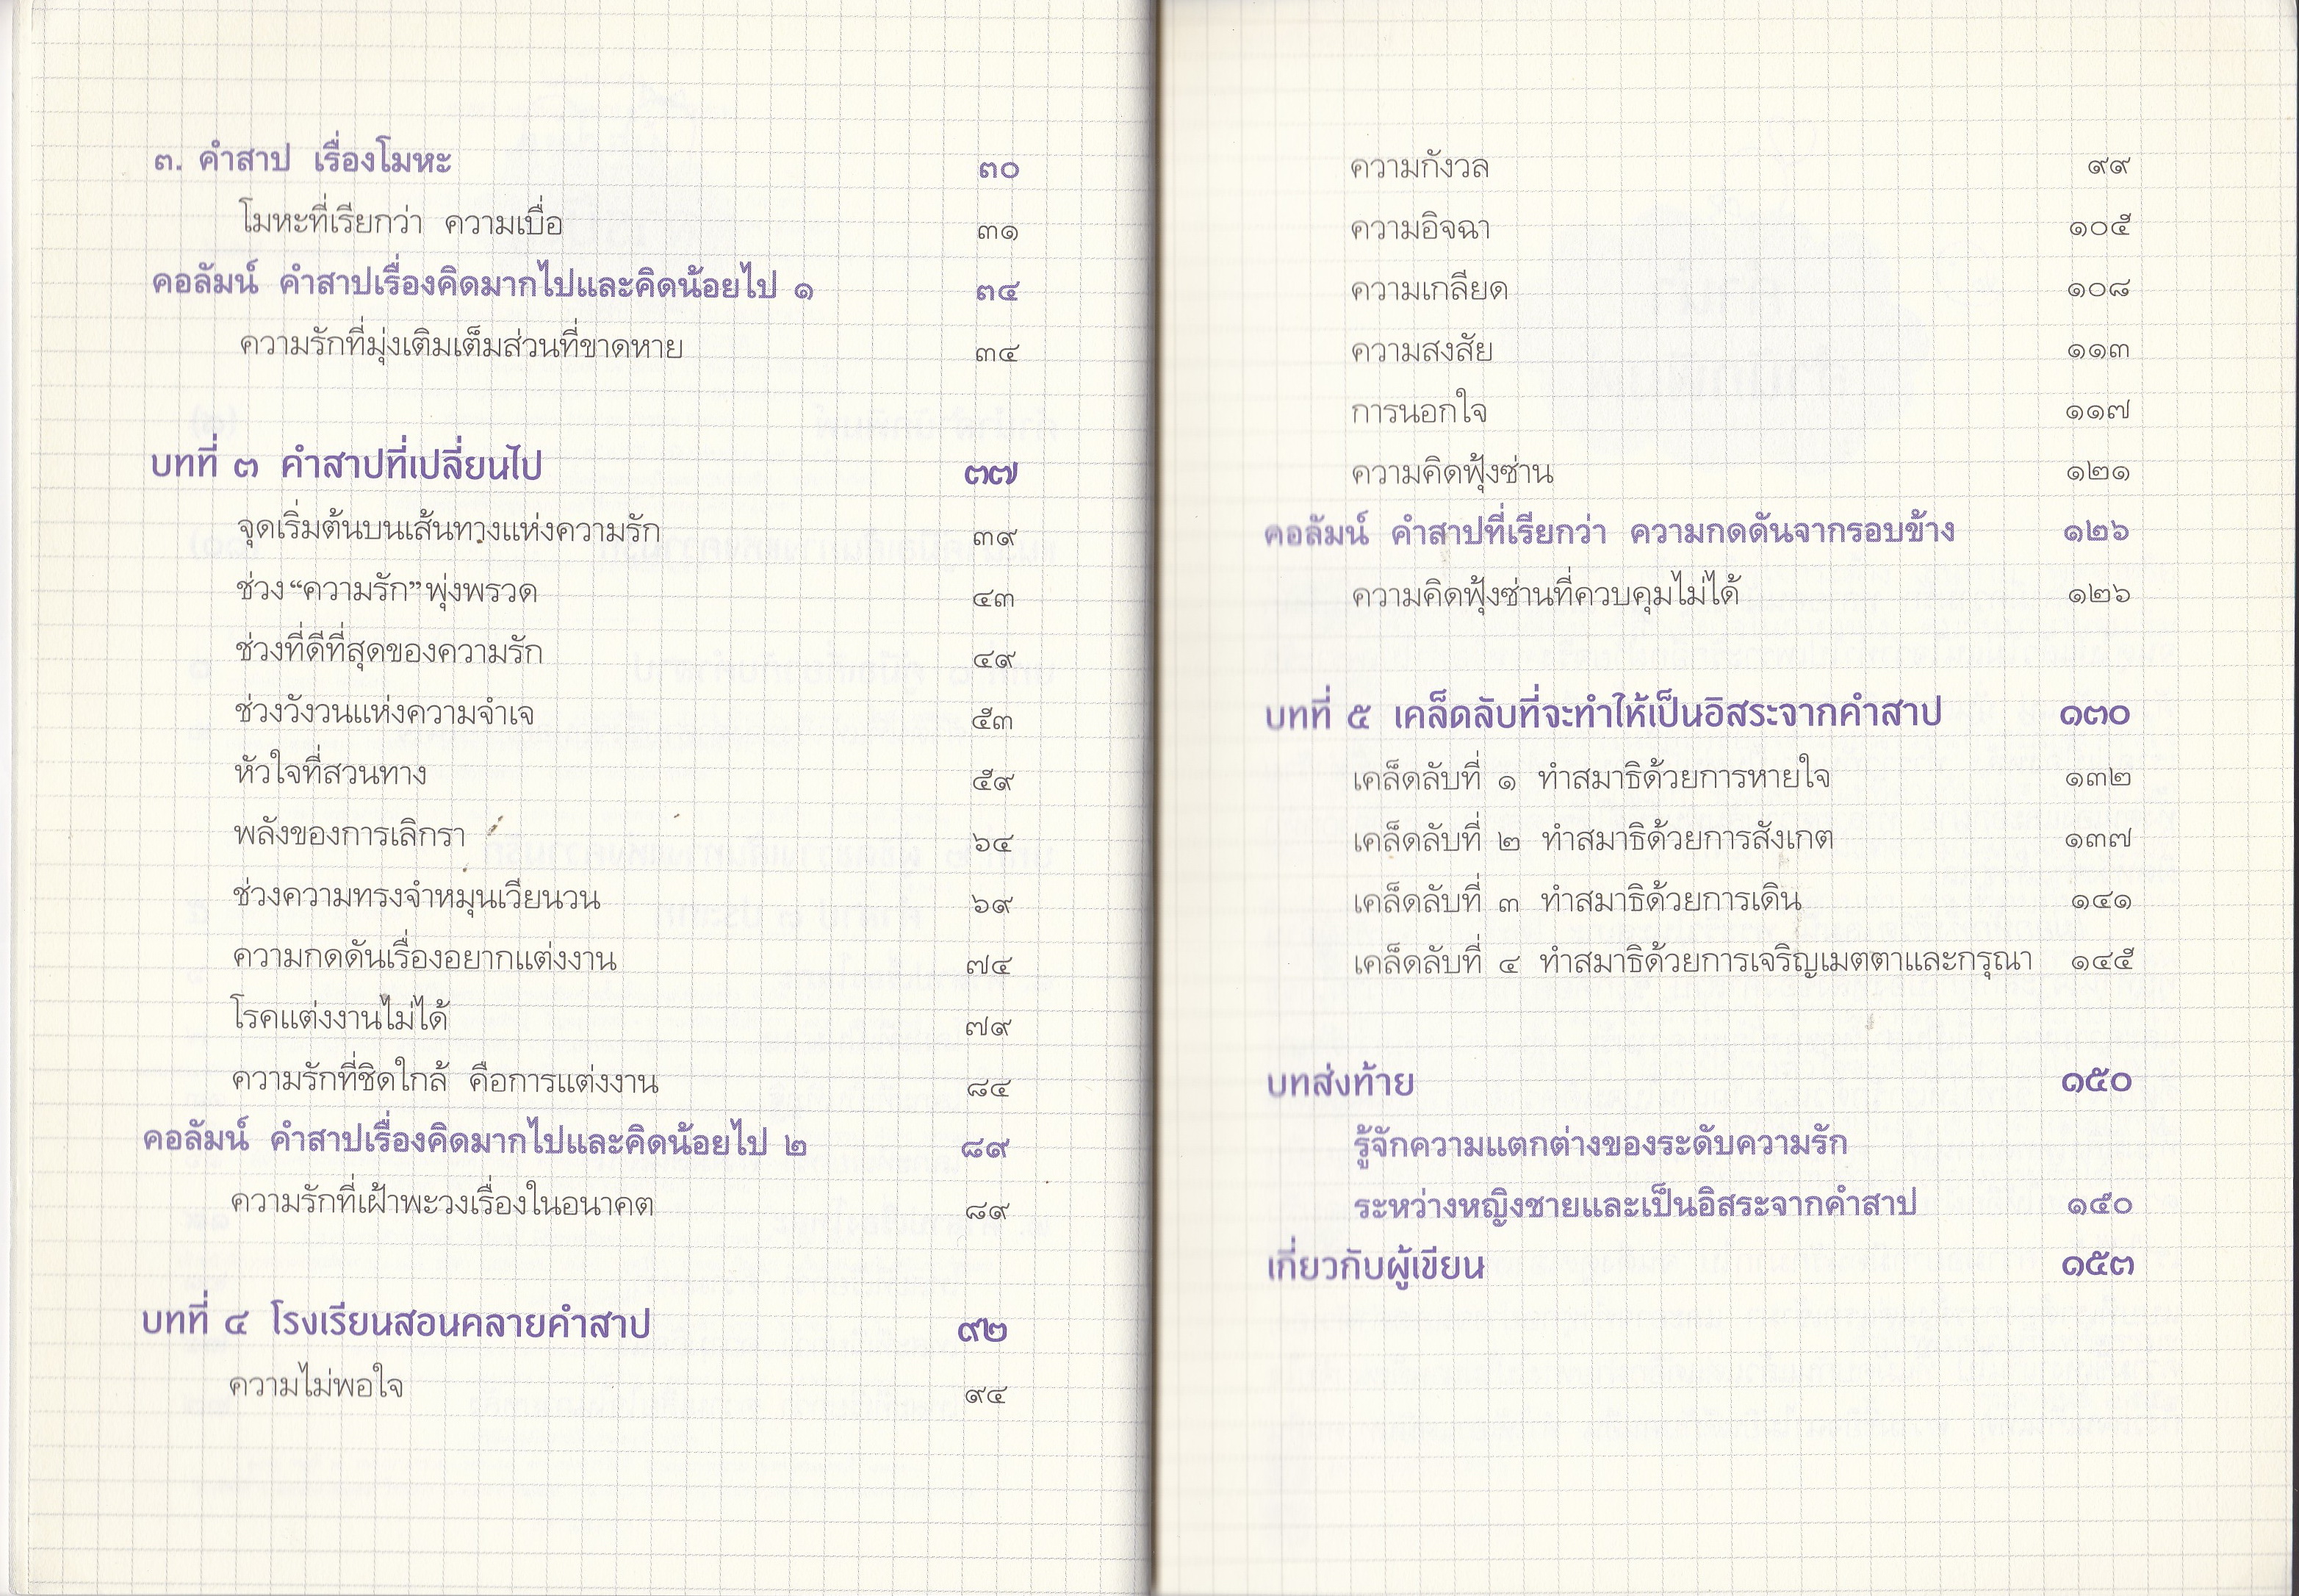 ๓. คำสาป เรื่องโมหะ ๓๐
โมหะที่เรียกว่า ความเบื่อ ๓๑
คอลัมน์ คำสาปเรื่องคิดมากไปและคิดน้อยไป ๑ ๓๔
ความรักที่มุ่งเติมเต็มส่วนที่ขาดหาย ๓๔
บทที่ ๓ คำสาปที่เปลี่ยนไป ๓๗
จุดเริ่มต้นบนเส้นทางแห่งความรัก ๓๙
ช่วง “ความรัก” พุ่งพรวด ๔๓
ช่วงที่ดีที่สุดของความรัก ๔๙
ช่วงวังวนแห่งความจำเจ ๕๓
หัวใจที่สวนทาง ๕๙
พลังของการเลิกรา ๖๔
ช่วงความทรงจำหมุนเวียนวน ๖๙
ความกดดันเรื่องอยากแต่งงาน ๗๔
โรคแต่งงานไม่ได้ ๗๙
ความรักที่ชิดใกล้ คือการแต่งงาน ๘๔
คอลัมน์ คำสาปเรื่องคิดมากไปและคิดน้อยไป ๒ ๘๙
ความรักที่เฝ้าพะวงเรื่องในอนาคต ๘๙
บทที่ ๔ โรงเรียนสอนคลายคำสาป ๙๒
ความไม่พอใจ ๙๔
ความกังวล ๙๙
ความอิจฉา ๑๐๕
ความเกลียด ๑๐๘
ความสงสัย ๑๑๓
การนอกใจ ๑๑๗
ความคิดฟุ้งซ่าน ๑๒๑
คอลัมน์ คำสาปที่เรียกว่า ความกดดันจากรอบข้าง ๑๒๖
ความคิดฟุ้งซ่านที่ควบคุมไม่ได้ ๑๒๖
บทที่ ๕ เคล็ดลับที่จะทำให้เป็นอิสระจากคำสาป ๑๓๐
เคล็ดลับที่ ๑ ทำสมาธิด้วยการหายใจ ๑๓๒
เคล็ดลับที่ ๒ ทำสมาธิด้วยการสังเกต ๑๓๗
เคล็ดลับที่ ๓ ทำสมาธิด้วยการเดิน ๑๔๑
เคล็ดลับที่ ๔ ทำสมาธิด้วยการเจริญเมตตาและกรุณา ๑๔๕
บทส่งท้าย ๑๕๐
รู้จักความแตกต่างของระดับความรัก
ระหว่างหญิงชายและเป็นอิสระจากคำสาป ๑๕๐
เกี่ยวกับผู้เขียน ๑๕๓